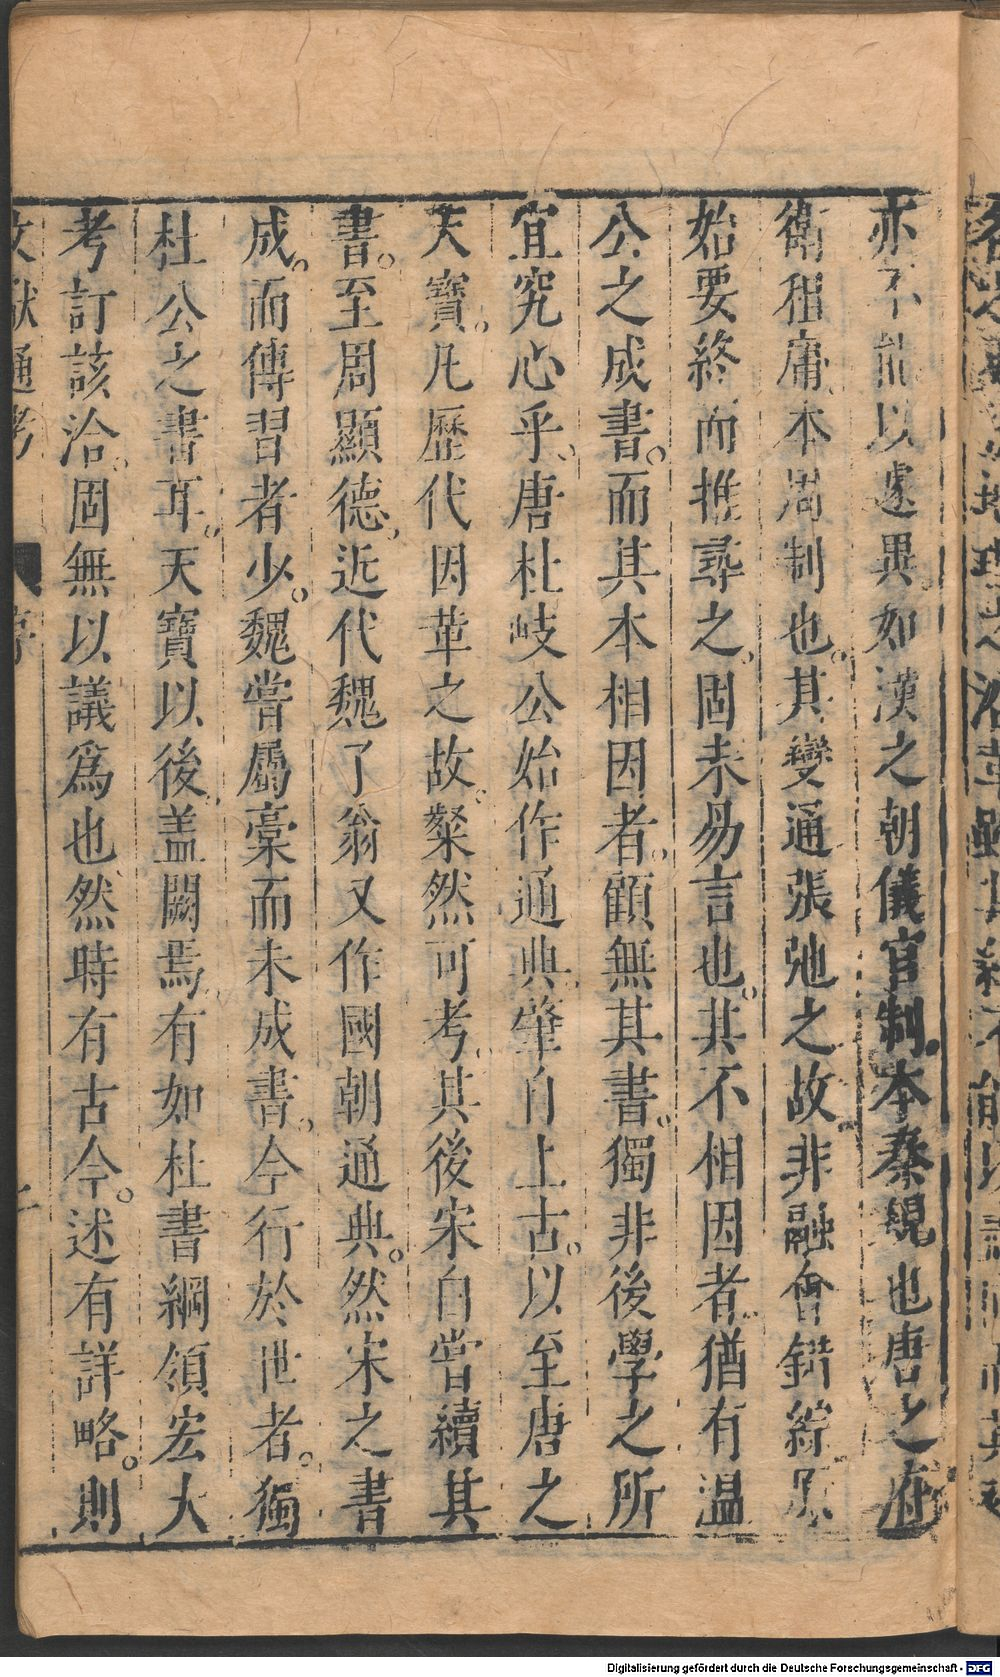 亦不能以遽異。如漢之朝儀官制。本秦規也唐之府
衛租庸本周制也。其變通張弛之故。非融會錯綜。原
始要終而推尋之。固未易言也。其不相因者。猶有溫
公之成書。而其本相因者。顧無其書。獨非後學之所
宜究心乎。唐杜岐公始作通典。肇自上古。以至唐之
天寶。凡歷代因革之故。粲然可考。其後宋白嘗續其
書。至周顯德。近代魏了翁又作國朝通典。然宋之書
成。而傳習者少。魏嘗屬藁而未成書。今行於世者。獨
杜公之書耳。天寶以後。盖闕焉。有如杜書綱領宏大
考訂該洽。固無以議爲也。然時有古今。述有詳略。則
文獻通考 序
Digitalisierung gefördert durch die Deutsche Forschungsgemeinschaft - DFG